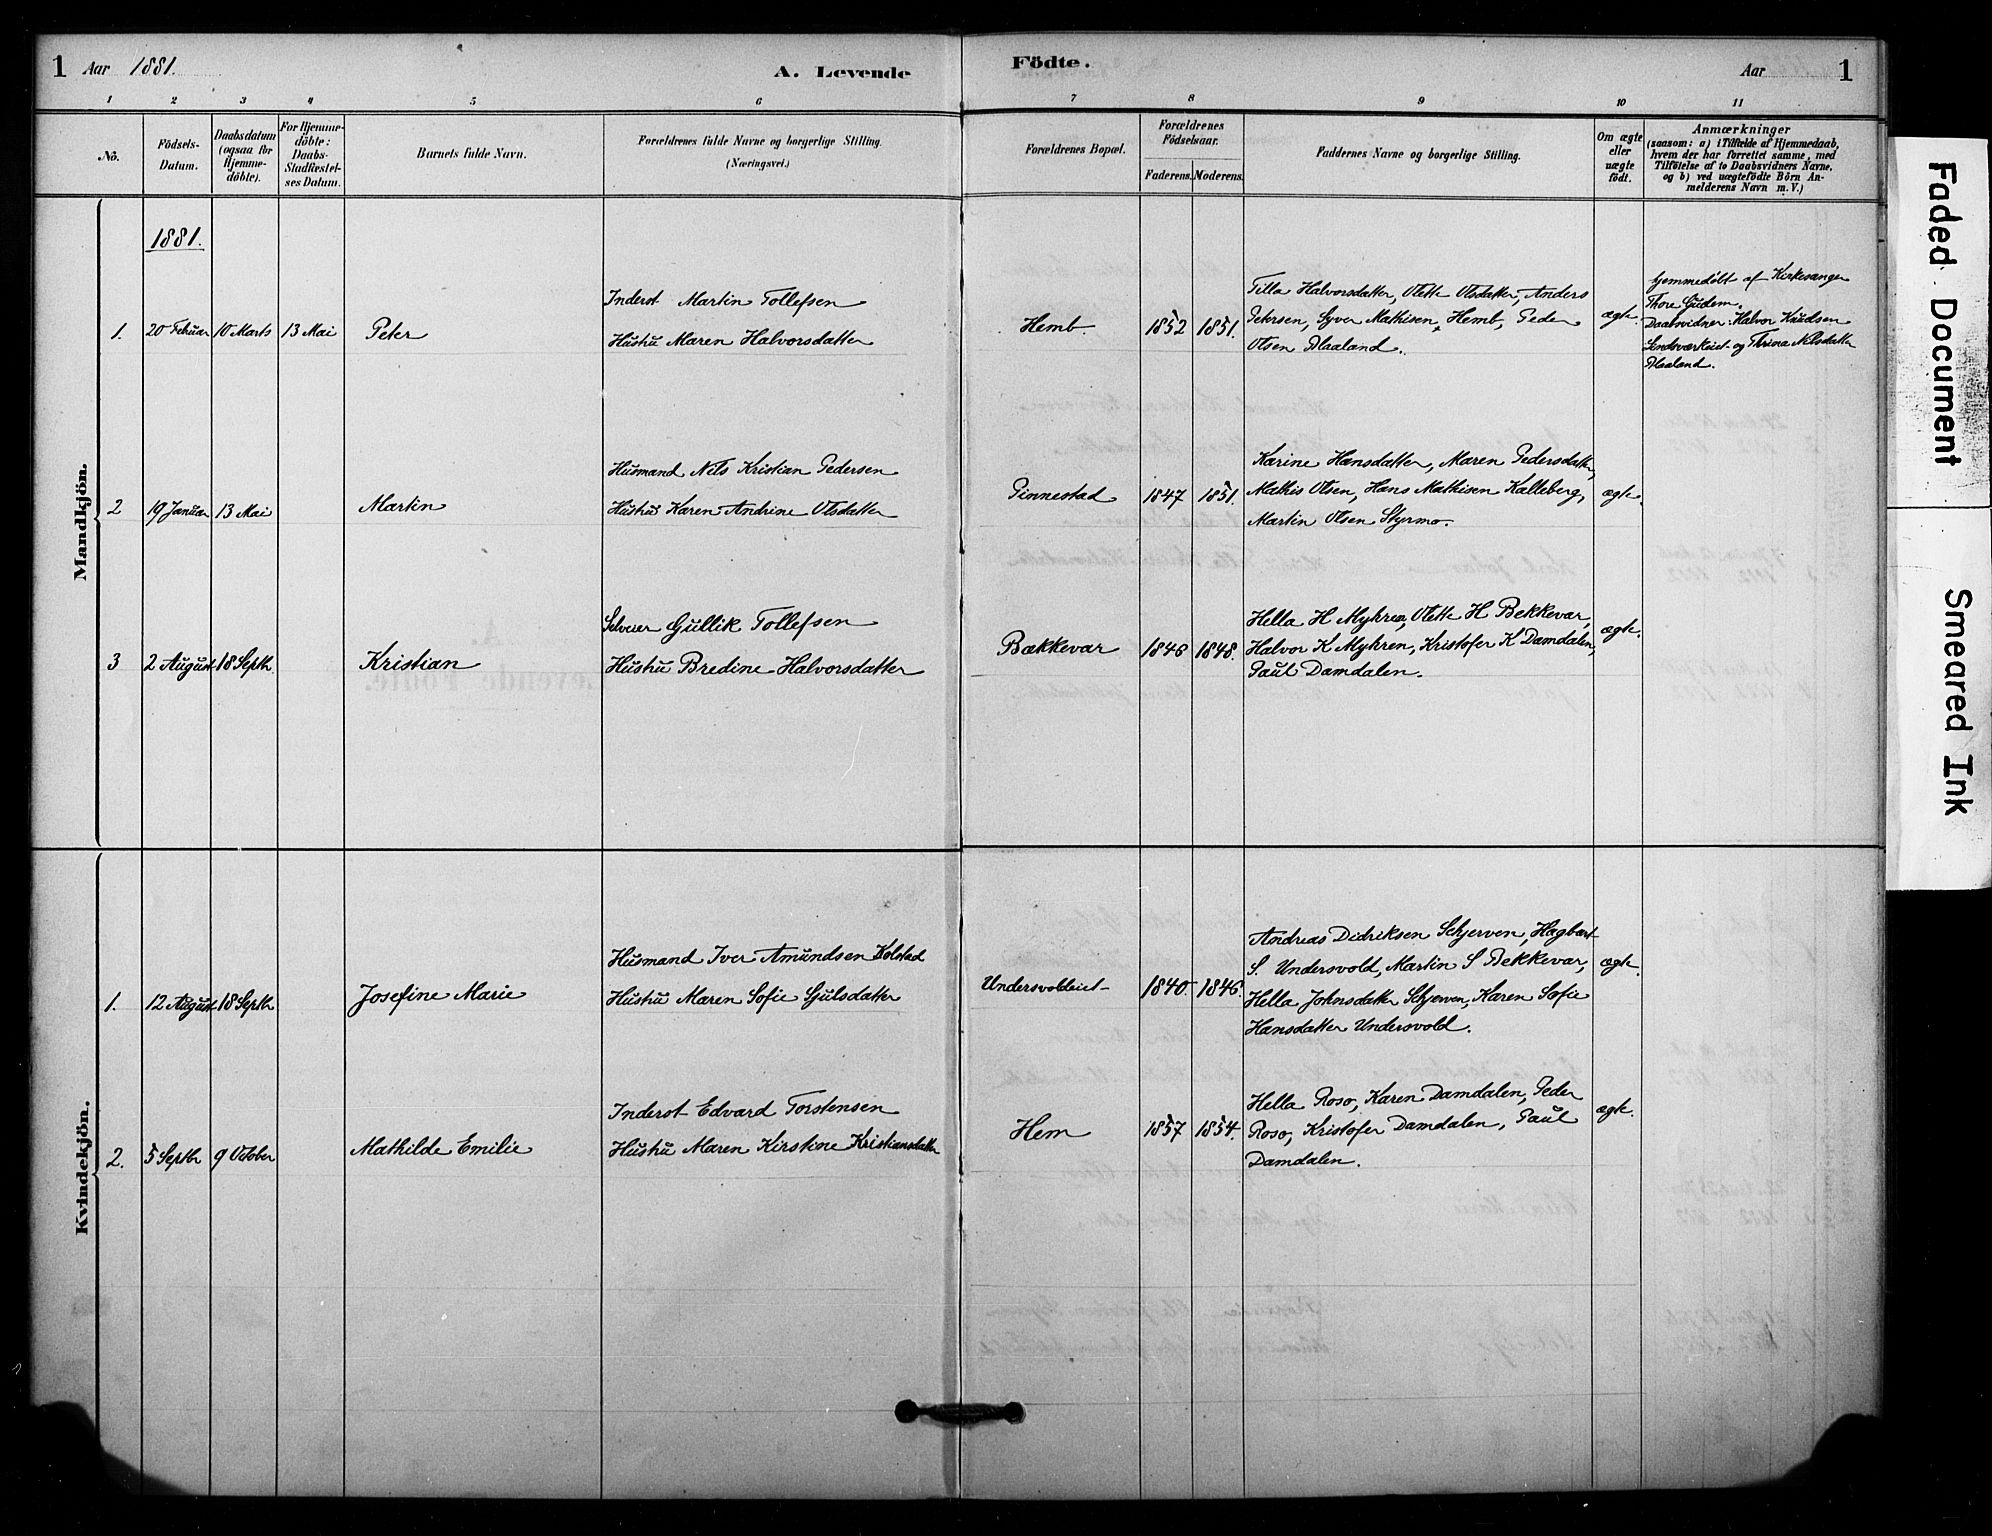 1 Aar 1881.
A. Levende
Födte.
Aar 1
1 2 3 4 5 6 7 8 9 10 11
No.
Födsels-
Datum.
Daabsdatum
(ogsaa for
Hjemme-
döbte).
For Hjemme-
döbte:
Daabs-
Stadfæstel-
ses Datum.
Barnets fulde Navn.
Forældrenes fulde Navne og borgerlige Stilling.
(Næringsvei.)
Forældrenes Bopæl.
Forældrenes
Födselsaar.
Faderens. Moderens.
Faddernes Navne og borgerlige Stilling.
Om ægte
eller
uægte
födt.
Anmærkninger
(saasom: a) i Tilfælde af Hjemmedaab,
hvem der har forrettet samme, med
Tilföielse af to Daabsvidners Navne,
og b) ved uægtefödte Börn An-
melderens Navn m. V.)
Mandkjön.
1881.
1. 20 Februar 10 Marts 13 Mai Peter
Inderst Martin Tollefsen
Hustru Maren Halvorsdatter
Hemb 1852 1851.
Tilla Halvorsdatter, Olette Olsdatter, Anders
Petersen, Syver Mathisen, Hemb, Peder
Olsen Blaaland.
ægte.
hjemmedøbt af Kirkesanger
Thore Gudem.
Daabsvidner: Halvor Knudsen
og Thrina Nilsdatter
Blaaland.
2 19 Januar 13 Mai Martin
Husmand Nils Kristian Pedersen
Hustru Karen Andrine Olsdatter
Pinnestad 1847 1851.
Karine Hansdatter, Maren Pedersdatter,
Mathis Olsen, Hans Mathisen Kalleberg,
Martin Olsen Styrmo.
ægte.
3 2 August 18 Septb. Kristian
Selveier Gullik Tollefsen
Hustru Bredine Halvorsdatter
Bækkevar 1846 1848.
Hella H Myhren, Olette H Bekkevar,
Halvor K Myhren, Kristofer K Damdalen,
Paul Damdalen.
ægte.
Kvindekjön.
1. 12 August 18 Septb Josefine Marie
Husmand Iver Amundsen Kolstad
Hustru Maren Sofie Gjulsdatter
Undersvoldeiet 1840. 1846.
Andreas Didriksen Schjerven, Hagbart
S. Undersvold, Martin S Bekkevar,
Hella Johnsdatter Schjerven, Karen Sofie
Hansdatter Undersvold.
ægte.
2. 5 Septbr 9 October Mathilde Emilie
Inderst Edvard Torstensen
Hustru Maren Kirstine Kristiansdatter
Hem 1857 1854.
Hella Roso, Karen Damdalen, Peder
Roso, Kristofer Damdalen, Paul
Damdalen.
ægte.
Faded Document
Smeared Ink